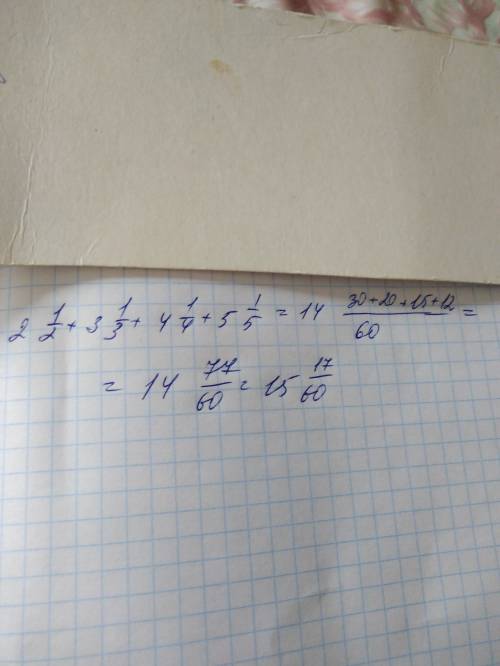 2 1/2 + 3 1/3 + 4 1/4 + 5 1/5 = 14 (30+20+15+12)/60 =
= 14 77/60 = 15 17/60